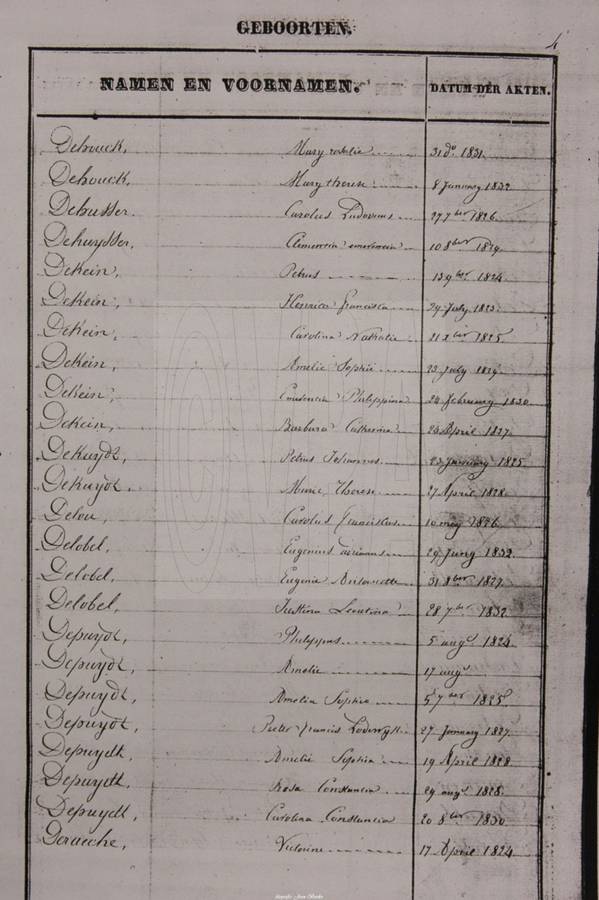 GEBOORTEN.
NAMEN EN VOORNAMEN. DATUM DER AKTEN.
Dehouck, Mary rosalie 31 do 1831
Dehouck, Mary therese 8 January 1832
Debusser. Carolus Ludovicus 27 7ber 1826
Dehuysser, Clementia 10 8ber 1829
DeKein, Petrus 13 9ber 1824
DeKein, Henrica francisca 29 July 1823
DeKein, Carolina Nathalie 21 xber 1825
DeKein, Amelie Sophie 23 July 1829
DeKein, Philippina 24 February 1830
DeKein, Barbara Catherina 24 April 1827
DeKuydt, Petrus Johannes 23 January 1825
DeKuydt, Marie Therese 27 April 1828
Delou, Carolus franciskus 10 mey 1826
Delobel, Eugenius 29 Juny 1832
Delobel, Eugenie 31 8ber 1827
Delobel, Justina Leontina 28 7ber 1832
Depuydt, Philippus 5 augt 1824
Depuydt, Amelie 17 augt
Depuydt, Amelia Sophia 5 7ber 1825
Depuydt, Pieter francis Lodewyk 27 January 1827
Depuydt, Amelie Sophia 19 April 1828
Depuydt, Rosa Constancia 29 augt 1828
Depuydt, Carolina Constancia 20 8ber 1830
Deraeche, Victorine 17 April 1824